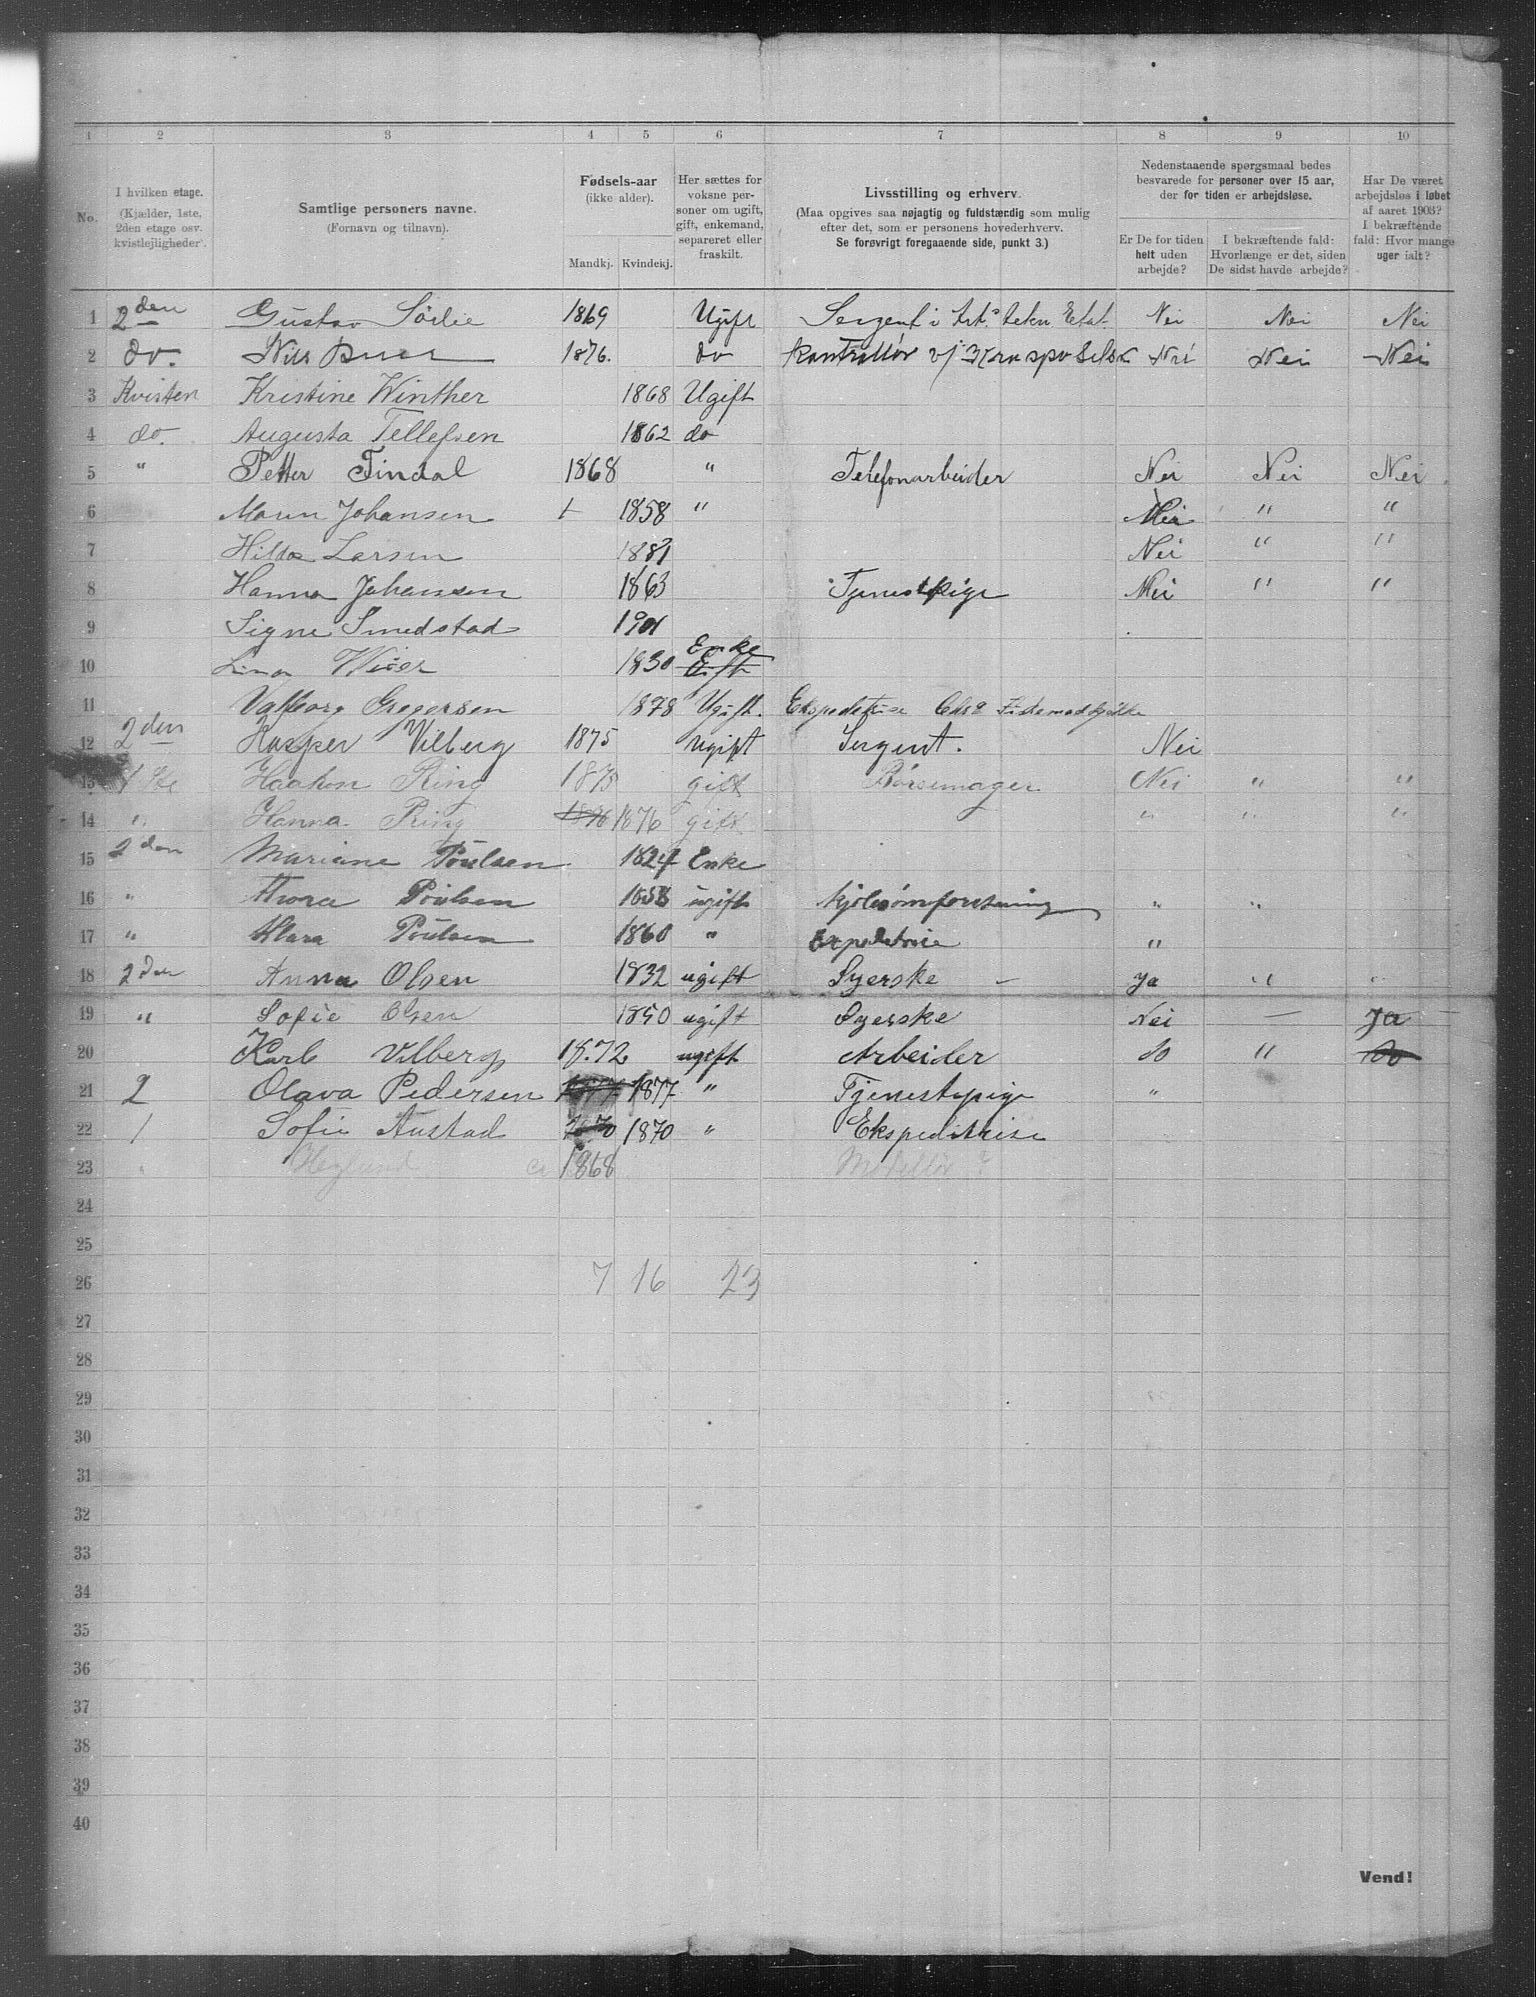 1 2 3 4 5 6 7 8 9 10
No.
I hvilken etage.
(Kjælder, 1ste,
2den etage osv.
kvistlejligheder).
Samtlige personers navne.
(Fornavn og tilnavn).
Fødsels-aar
(ikke alder).
Mandkj. Kvindekj.
Her sættes for
voksne per-
soner om ugift,
gift, enkemand,
separeret eller
fraskilt.
Livsstilling og erhverv.
(Maa opgives saa nøjagtig og fuldstændig som mulig
efter det, som er personens hovederhverv.
Se forøvrigt foregaaende side, punkt 3.)
Nedenstaaende spørgsmaal bedes
besvarede for personer over 15 aar,
der for tiden er arbejdsløse.
Er De for tiden
helt uden
arbejde?
I bekræftende fald:
Hvorlænge er det, siden
De sidst havde arbejde?
Har De været
arbejdsløs i løbet
af aaret 1903?
I bekræftende
fald: Hvor mange
uger ialt?
1 2den Gustav 1869 Ugift Sergent i Nei Nei Nei
2 do. Nils 1876. do Kontrollör v/ Nei Nei Nei
3 Kvisten Kristine Winther 1868 Ugift
4 do. Augusta Tellefsen 1862 do
5 " Petter Tindal 1868 " Telefonarbeider Nei Nei Nei
6 Maren Johansen 1858 " Nei " "
7 Hilda Larsen 1881 Nei " "
8 Hanna Johansen 1863 Tjenestepige Nei " "
9 Signe Smedstad 1901
10 Lina 1830 Enke Gift
11 Valborg Gregersen 1878 Ugift. Ekspeditrise
12 2den Kasper Vilberg 1875 Ugift Sergent. Nei
13 1ste Haakon Ring 1873 gift Børsemager Nei " "
14 " Hanna Ring 1876 1876 gift " " "
15 2den Mariane Poulsen 1824 Enke
16 " Thora Poulsen 1858 ugift Kjolesømforretning " "
17 " Klara Poulsen 1860 " Expeditrise "
18 2den Anna Olsen 1832 ugift Syerske - ja " "
19 " Sofie Olsen 1850 ugift Syerske Nei - Ja -
20 Karl Vilberg 1872 ugift Arbeider do " do
21 2 Olava Pedersen 1877 1877 " Tjenestepige "
22 1 Sofie Austad 1870 1870 " Ekspeditrise
23 " Høglund ca 1868 Modellør ?
24
25
26 7 16 23
27
28
29
30
31
32
33
34
35
36
37
38
39
40
Vend!